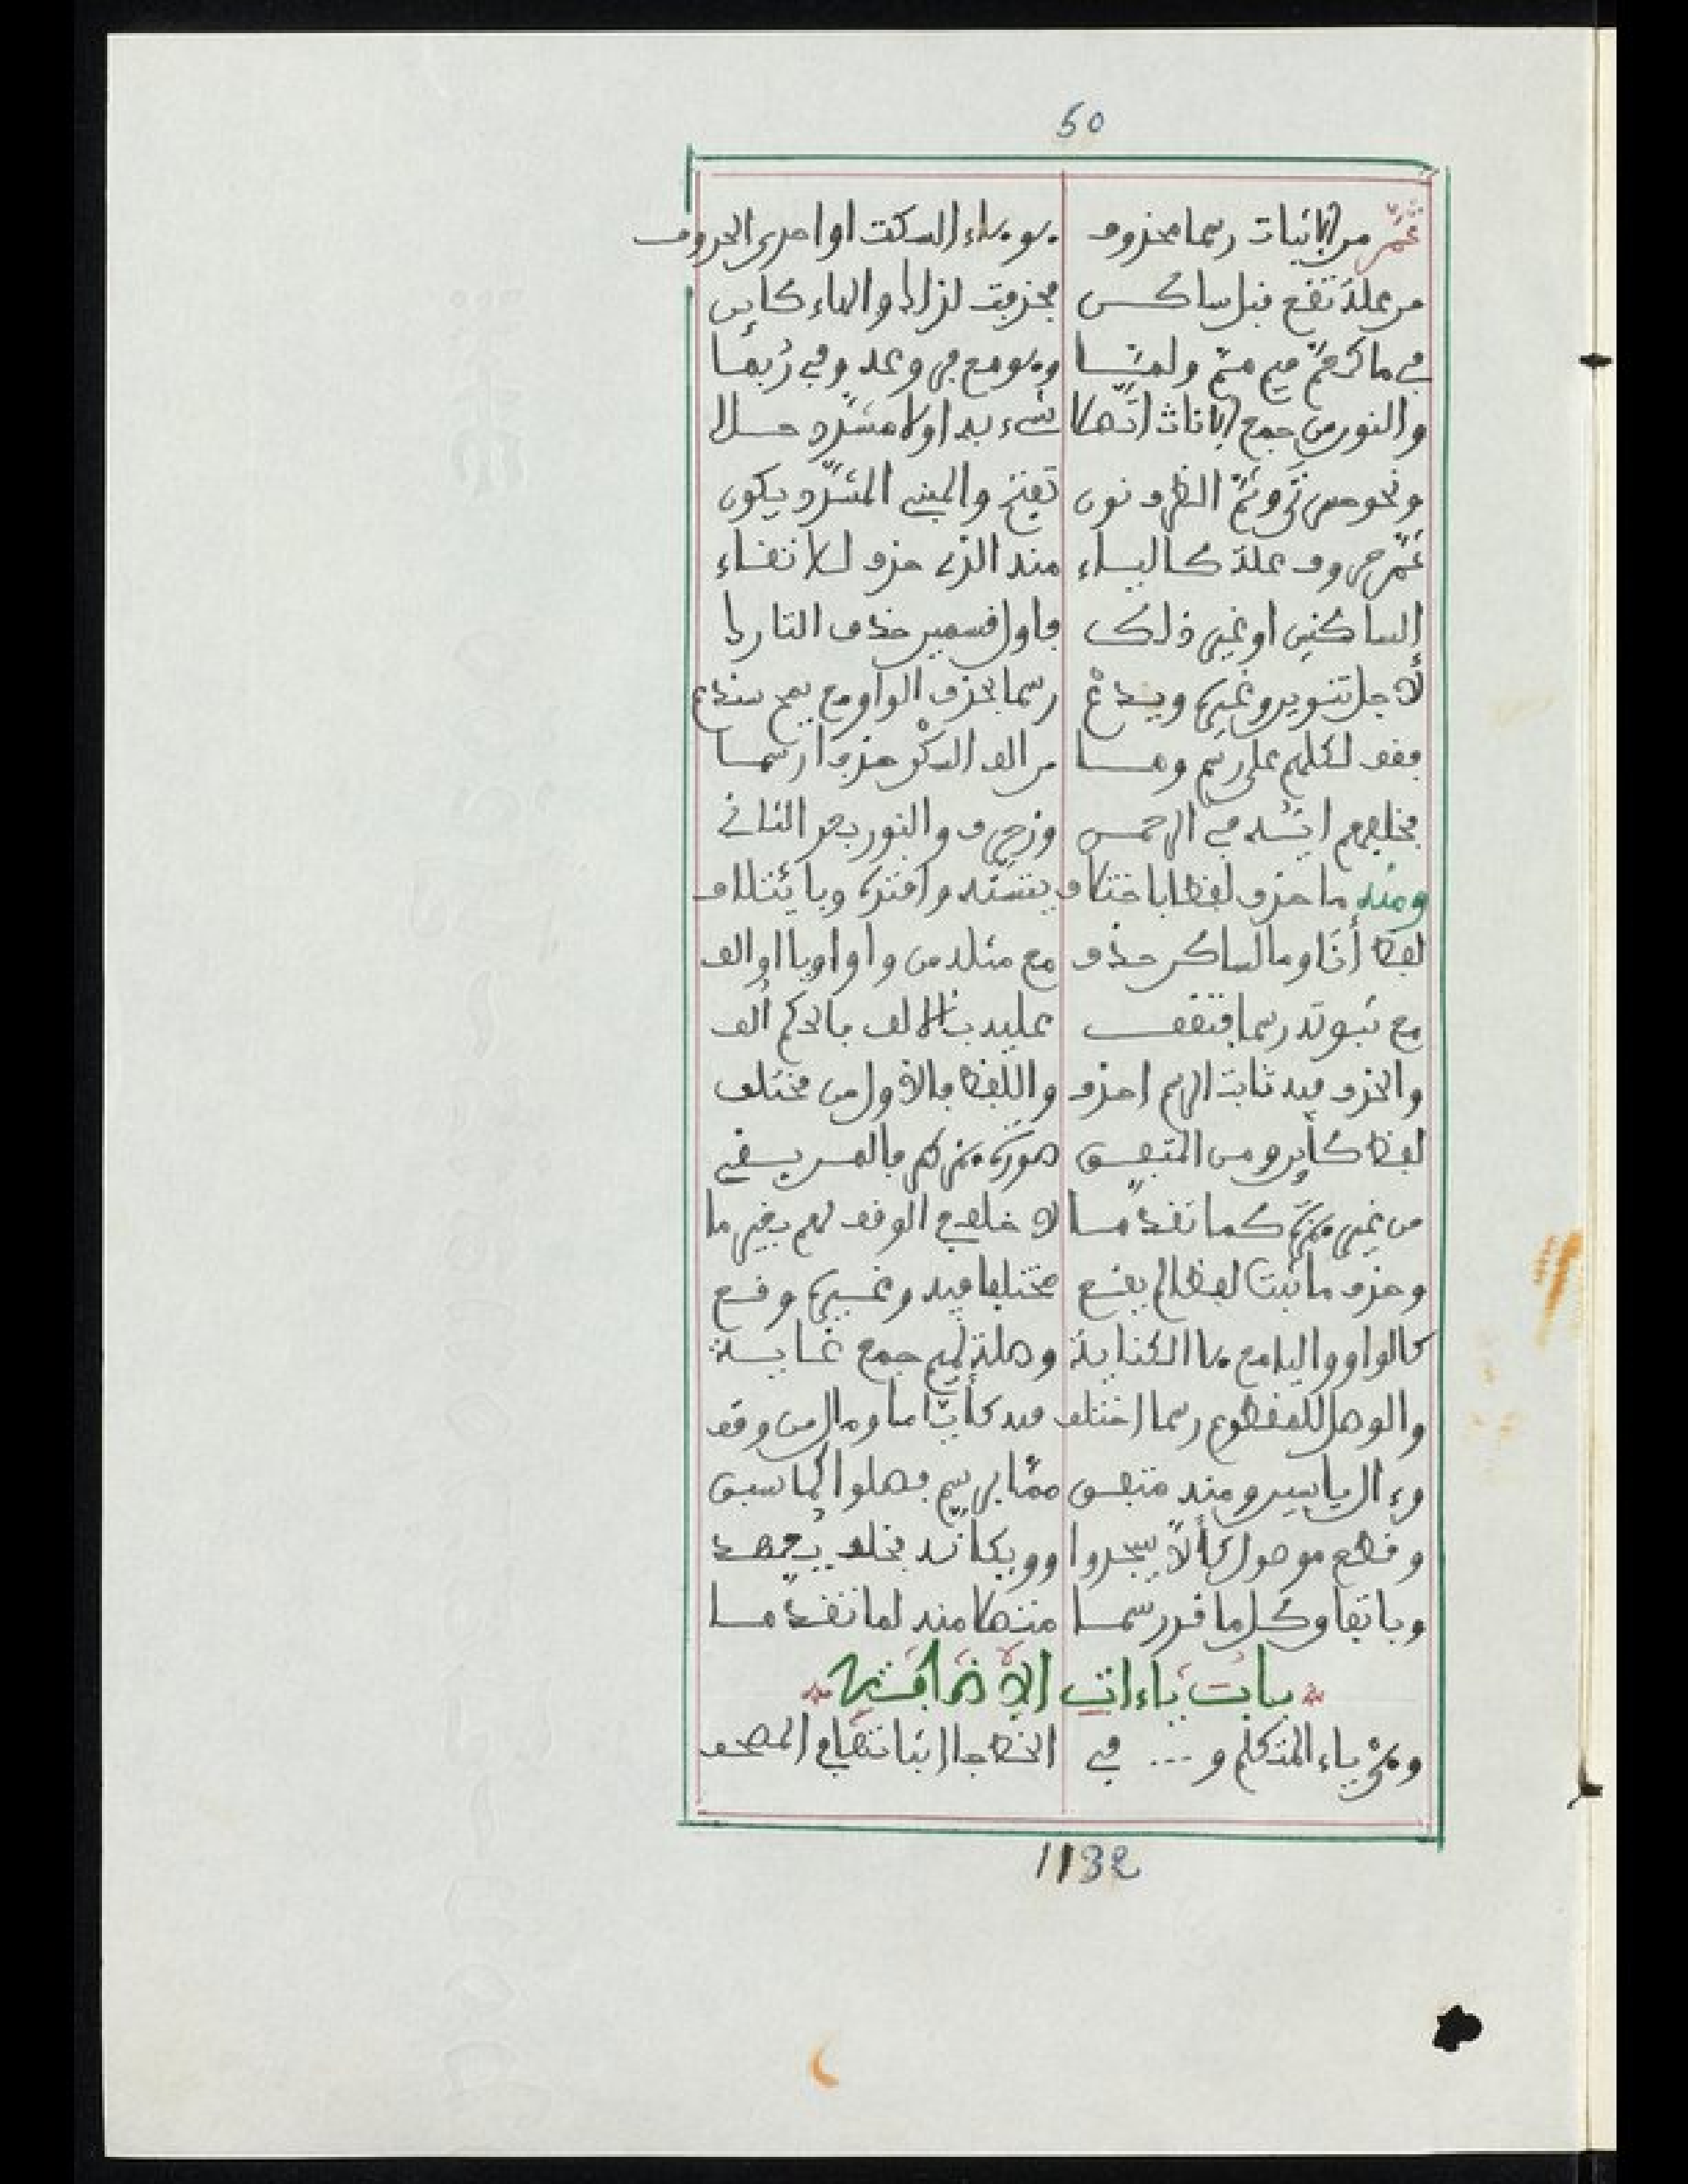 50
من الاثبات رسما محذوف وهو هاء السكت او احدى الحروف
من علة تقع قبل ساكن فحذفت لذا والهاء كائن
في ما كـ عم فيم مم ولمـا وهو مع هي وعنه وفي ربما
والنون من جمع الاناث اتصلا شيء به اولا مشدد جلا
ونحو من ثم الظرف نون تفتح والمبني المشدد يكون
حروف علة كالياء منه الذي حذف لالتقاء
الساكنين او غير ذلك فاول قسمين حذف التاركا
لأجل تنوين وغيره ويدع رسما بحذف الواو مع يمح سندع
فقف لكلهم على رسم وما من الف الذكر حذفا رسما
فخلفهم ايه في الرحمن وزخرف والنور بحر الثاني
ومنه ما حذف لفظا باختلاف يتسنه واقتده وبائتلاف
لفظ أنا وما لساكن حذف مع مثله من واو او يا او الف
مع ثبوته رسما فتقف عليه بالالف فالحكم ألف
والحذف فيه ثابت الرسم احذف واللفظ فالأول من مختلف
لفظ كأين ومن المتفق صورة همز فالمرء يقي
من غير همزة كما تقدما لا خلف في الوقف لهم بغير ما
وحذف ما ثبت لفظا لم يقع مختلفا فيه وغيره وقع
كالواو واليا مع ها الكناية وصلة لميم جمع غاية
والوصل للمقطوع رسما اختلف فيه كأيا ما ومال من وقف
وءال ياسين ومنه متفق مما برسم فصلوا لما سبق
وقطع موصول كألا يسجدوا وويكأنه بخلف يعمد
وباتفاق كل ما قد رسما متصلا منه لما تقدما
باب ياءات الاضافة
وهي ياء المتكلم و... في الخط جا اثباتها في المصحف
1132